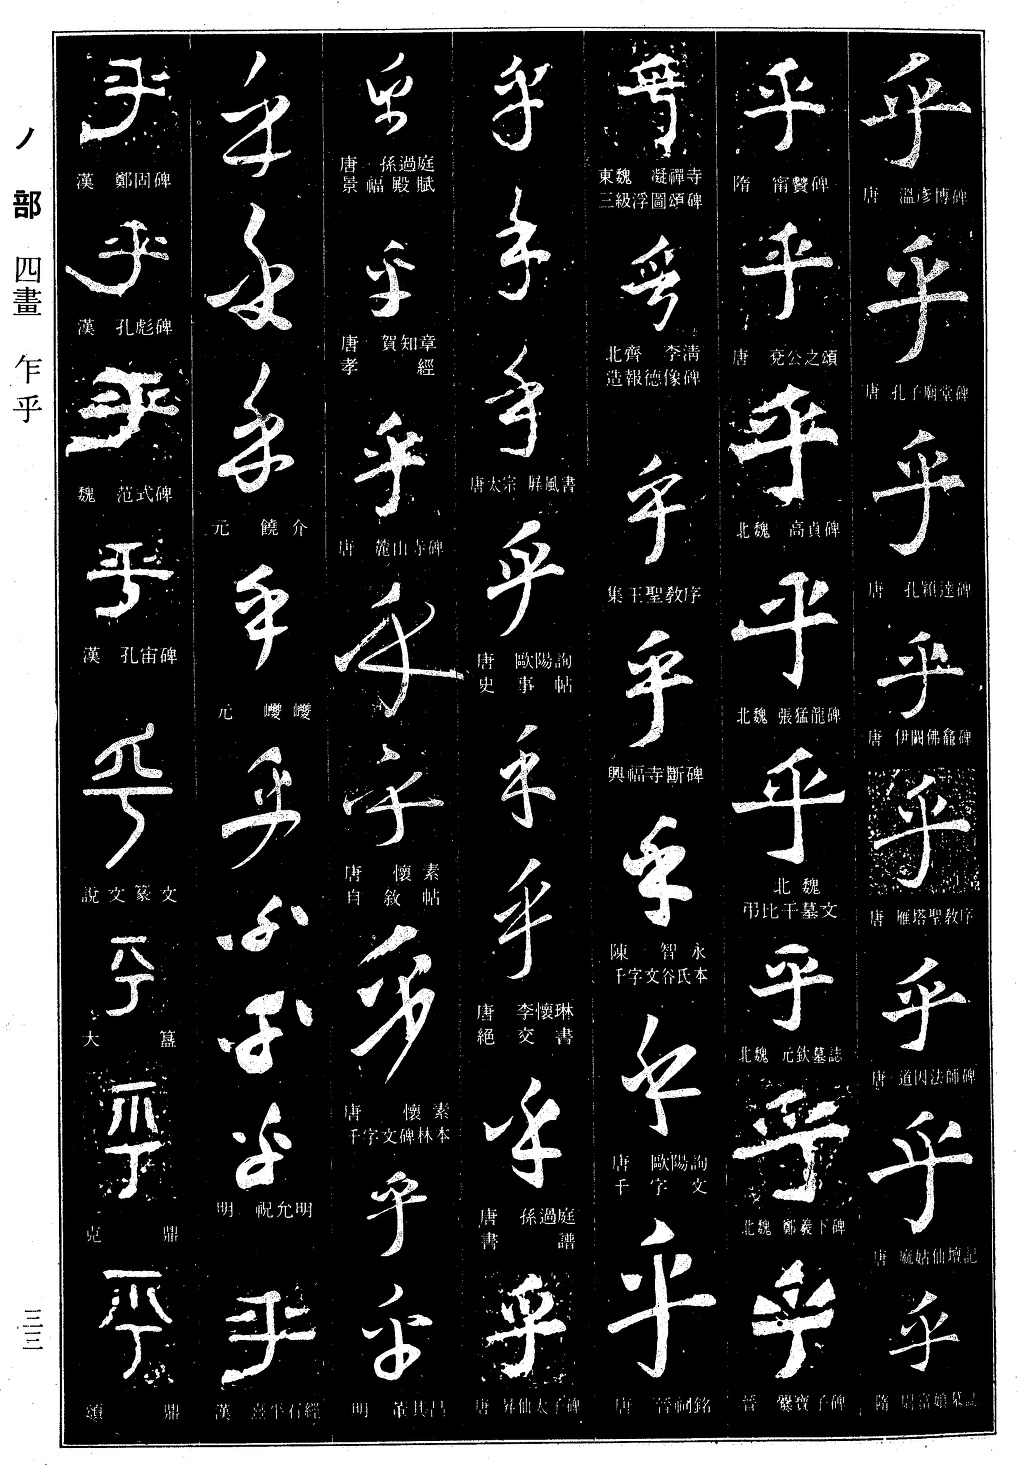 丿部 四畫 乍乎
三三
乎
唐 溫彥博碑
乎
唐 孔子廟堂碑
乎
唐 孔穎達碑
乎
唐 伊闕佛龕碑
乎
唐 雁塔聖教序
乎
唐 道因法師碑
乎
唐 麻姑仙壇記
乎
隋
乎
隋 甯贙碑
乎
唐 兗公之頌
乎
北魏 高貞碑
乎
北魏 張猛龍碑
乎
北魏
弔比干墓文
乎
北魏 元欽墓誌
乎
北魏 鄭羲下碑
乎
晉 爨寶子碑
乎
東魏 凝禪寺
三級浮圖頌碑
乎
北齊 李淸
造報德像碑
乎
集王聖教序
乎
興福寺斷碑
乎
陳 智永
千字文谷氏本
乎
唐 歐陽詢
千字文
乎
唐 晉祠銘
乎
乎
乎
唐太宗 屛風書
乎
唐 歐陽詢
史事帖
乎
乎
唐 李懷琳
絕交書
乎
唐 孫過庭
書譜
乎
唐 昇仙太子碑
乎
唐 孫過庭
景福殿賦
乎
唐 賀知章
孝經
乎
唐 麓山寺碑
乎
乎
唐 懷素
自敘帖
乎
唐 懷素
千字文碑林本
乎
乎
明 董其昌
乎
乎
乎
元 饒介
乎
元 巙巙
乎
乎
乎
乎
明 祝允明
乎
漢 熹平石經
乎
漢 鄭固碑
乎
漢 孔彪碑
乎
魏 范式碑
乎
漢 孔宙碑
乎
說文篆文
乎
大簋
乎
克鼎
乎
頌鼎